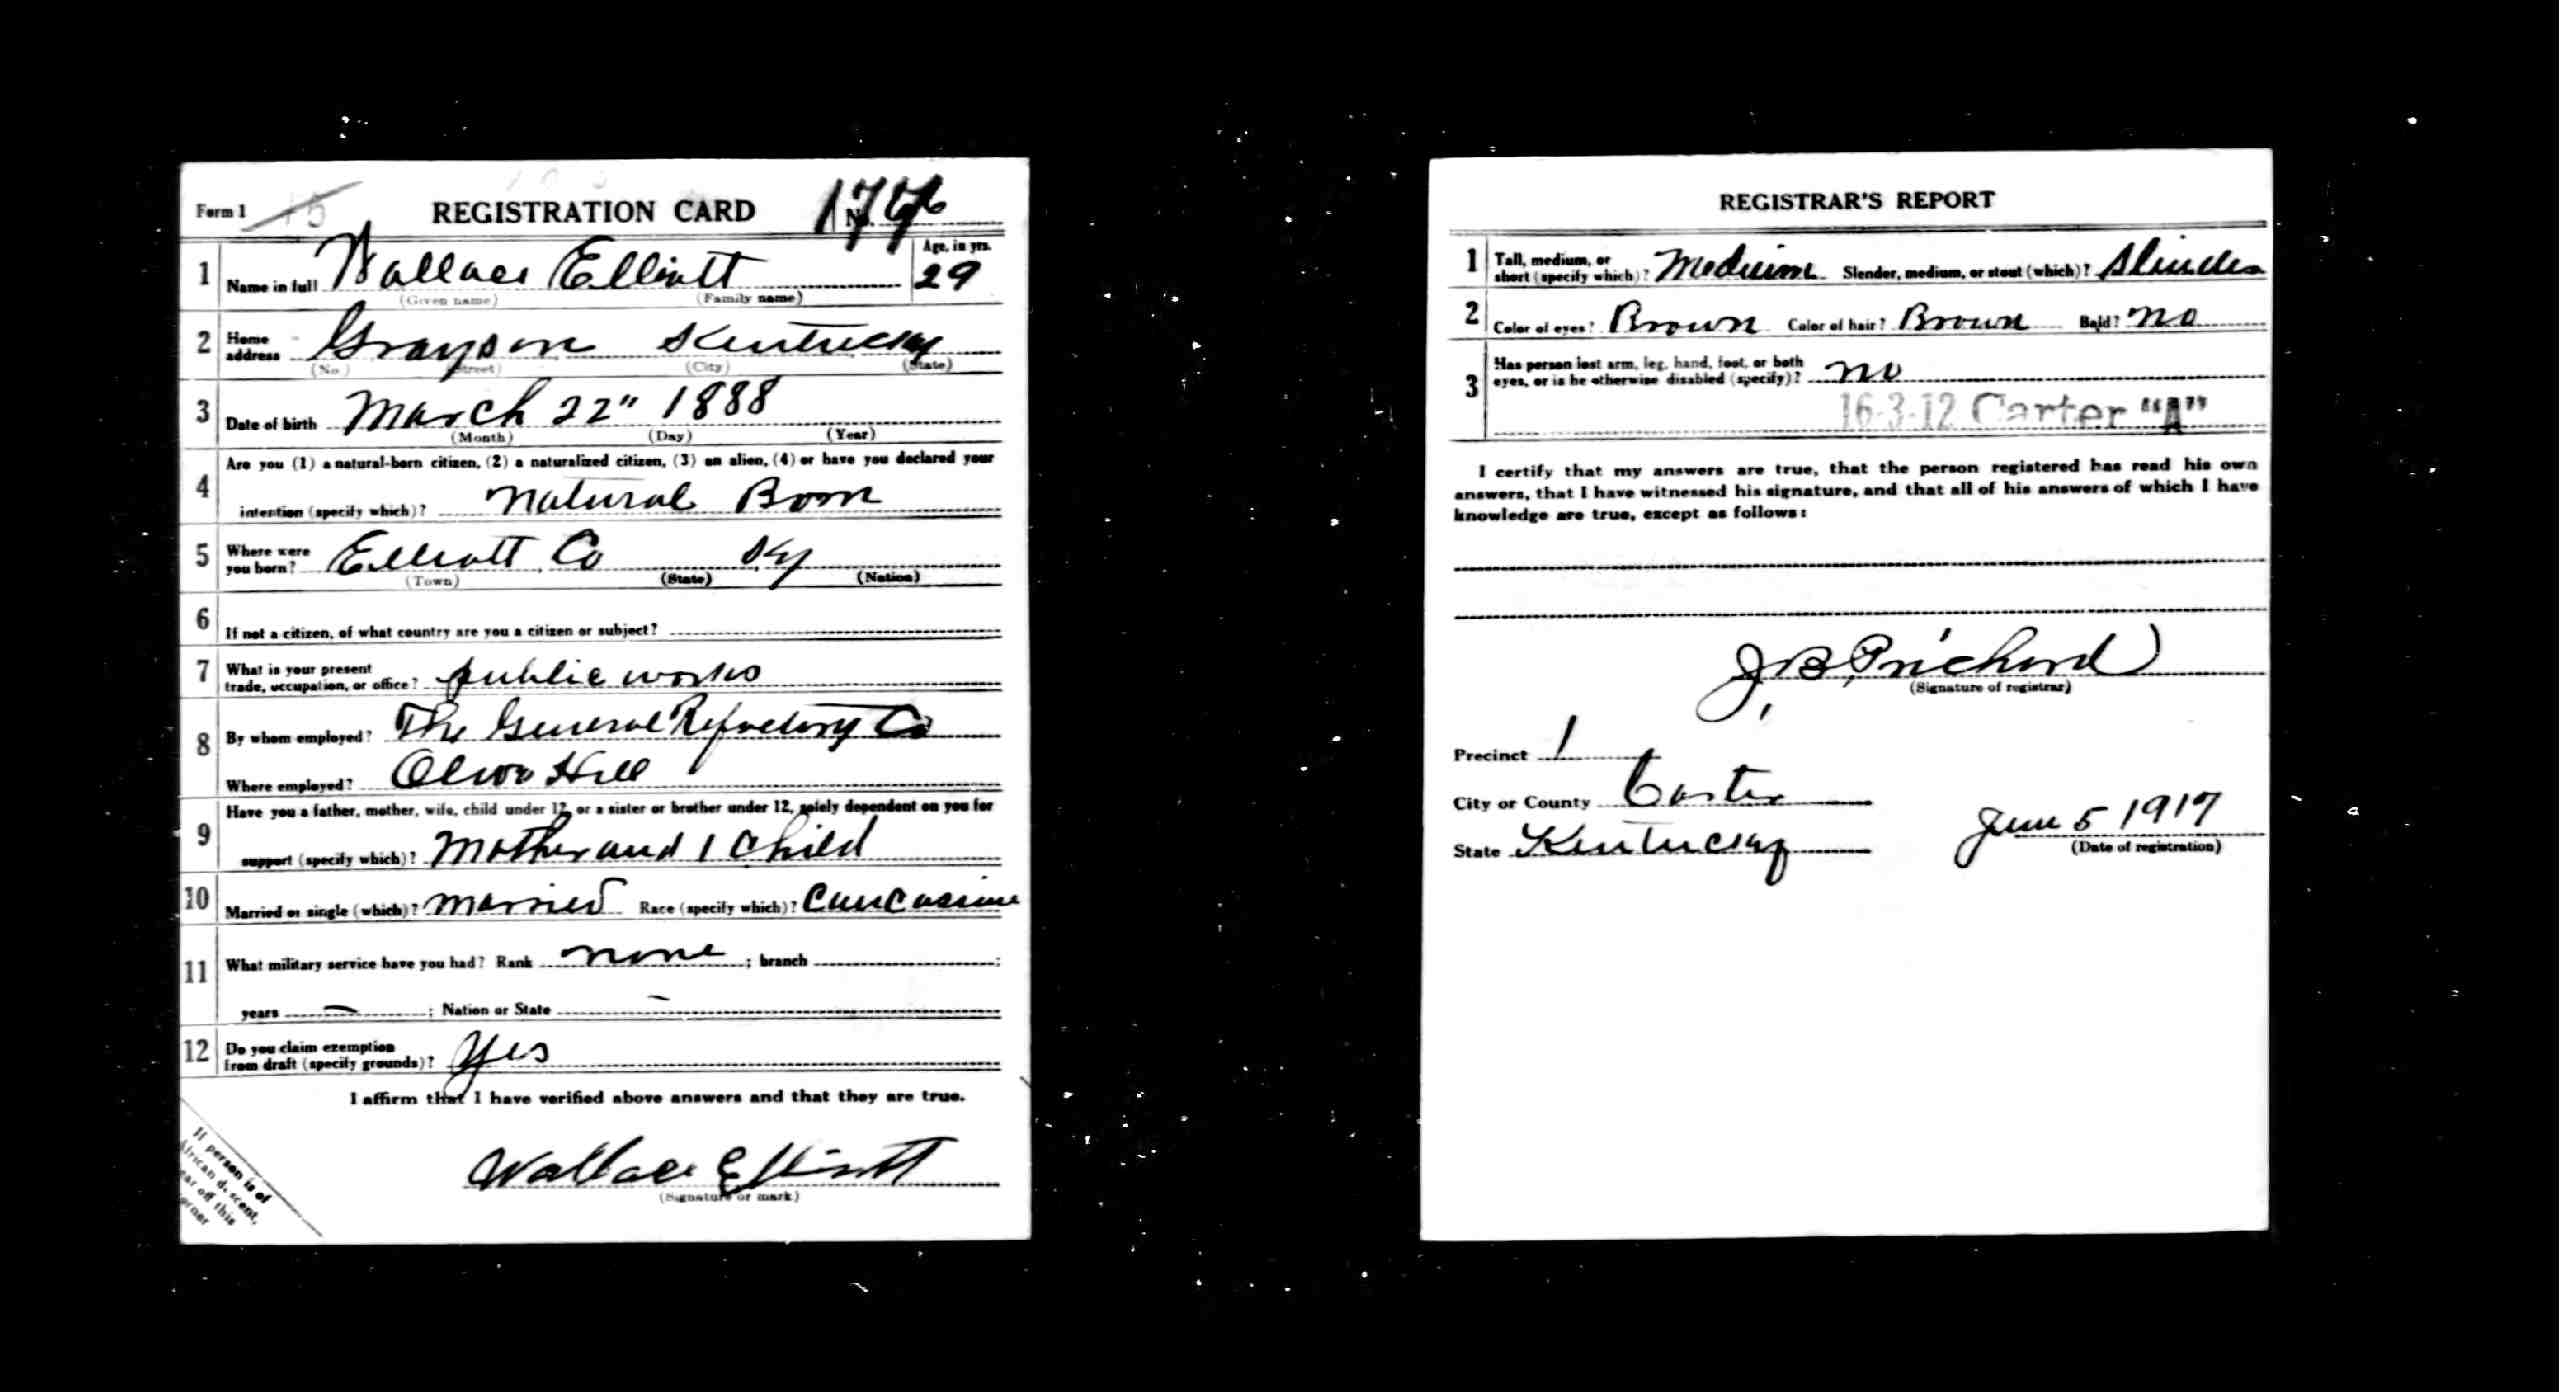 Form 1
REGISTRATION CARD
No.
1 Name in full Wallace Elliott
Age, in yrs. 29
(Given name) (Family name)
2 Home address Grayson Kentucky
(No.) (Street) (City) (State)
3 Date of birth March 22" 1888
(Month) (Day) (Year)
4 Are you (1) a natural-born citizen, (2) a naturalized citizen, (3) an alien, (4) or have you declared your
intention (specify which)? Natural Born
5 Where were you born? Elliott Co Ky
(Town) (State) (Nation)
6 If not a citizen, of what country are you a citizen or subject?
7 What is your present trade, occupation, or office? public works
8 By whom employed? The General Refractory Co
Where employed? Olive Hill
9 Have you a father, mother, wife, child under 12, or a sister or brother under 12, solely dependent on you for
support (specify which)? Mother and 1 Child
10 Married or single (which)? married Race (specify which)? Caucasian
11 What military service have you had? Rank none ; branch ;
years — ; Nation or State —
12 Do you claim exemption from draft (specify grounds)? Yes
I affirm that I have verified above answers and that they are true.
Wallace Elliott
(Signature or mark)
If person is of
African descent,
tear off this
corner
REGISTRAR'S REPORT
1 Tall, medium, or short (specify which)? Medium Slender, medium, or stout (which)? Slender
2 Color of eyes? Brown Color of hair? Brown Bald? No
3 Has person lost arm, leg, hand, foot, or both
eyes, or is he otherwise disabled (specify)? no
16-3-12 Carter "A"
I certify that my answers are true, that the person registered has read his own
answers, that I have witnessed his signature, and that all of his answers of which I have
knowledge are true, except as follows:
J. B. Prichard
(Signature of registrar)
Precinct 1
City or County Carter
State Kentucky
June 5 1917
(Date of registration)